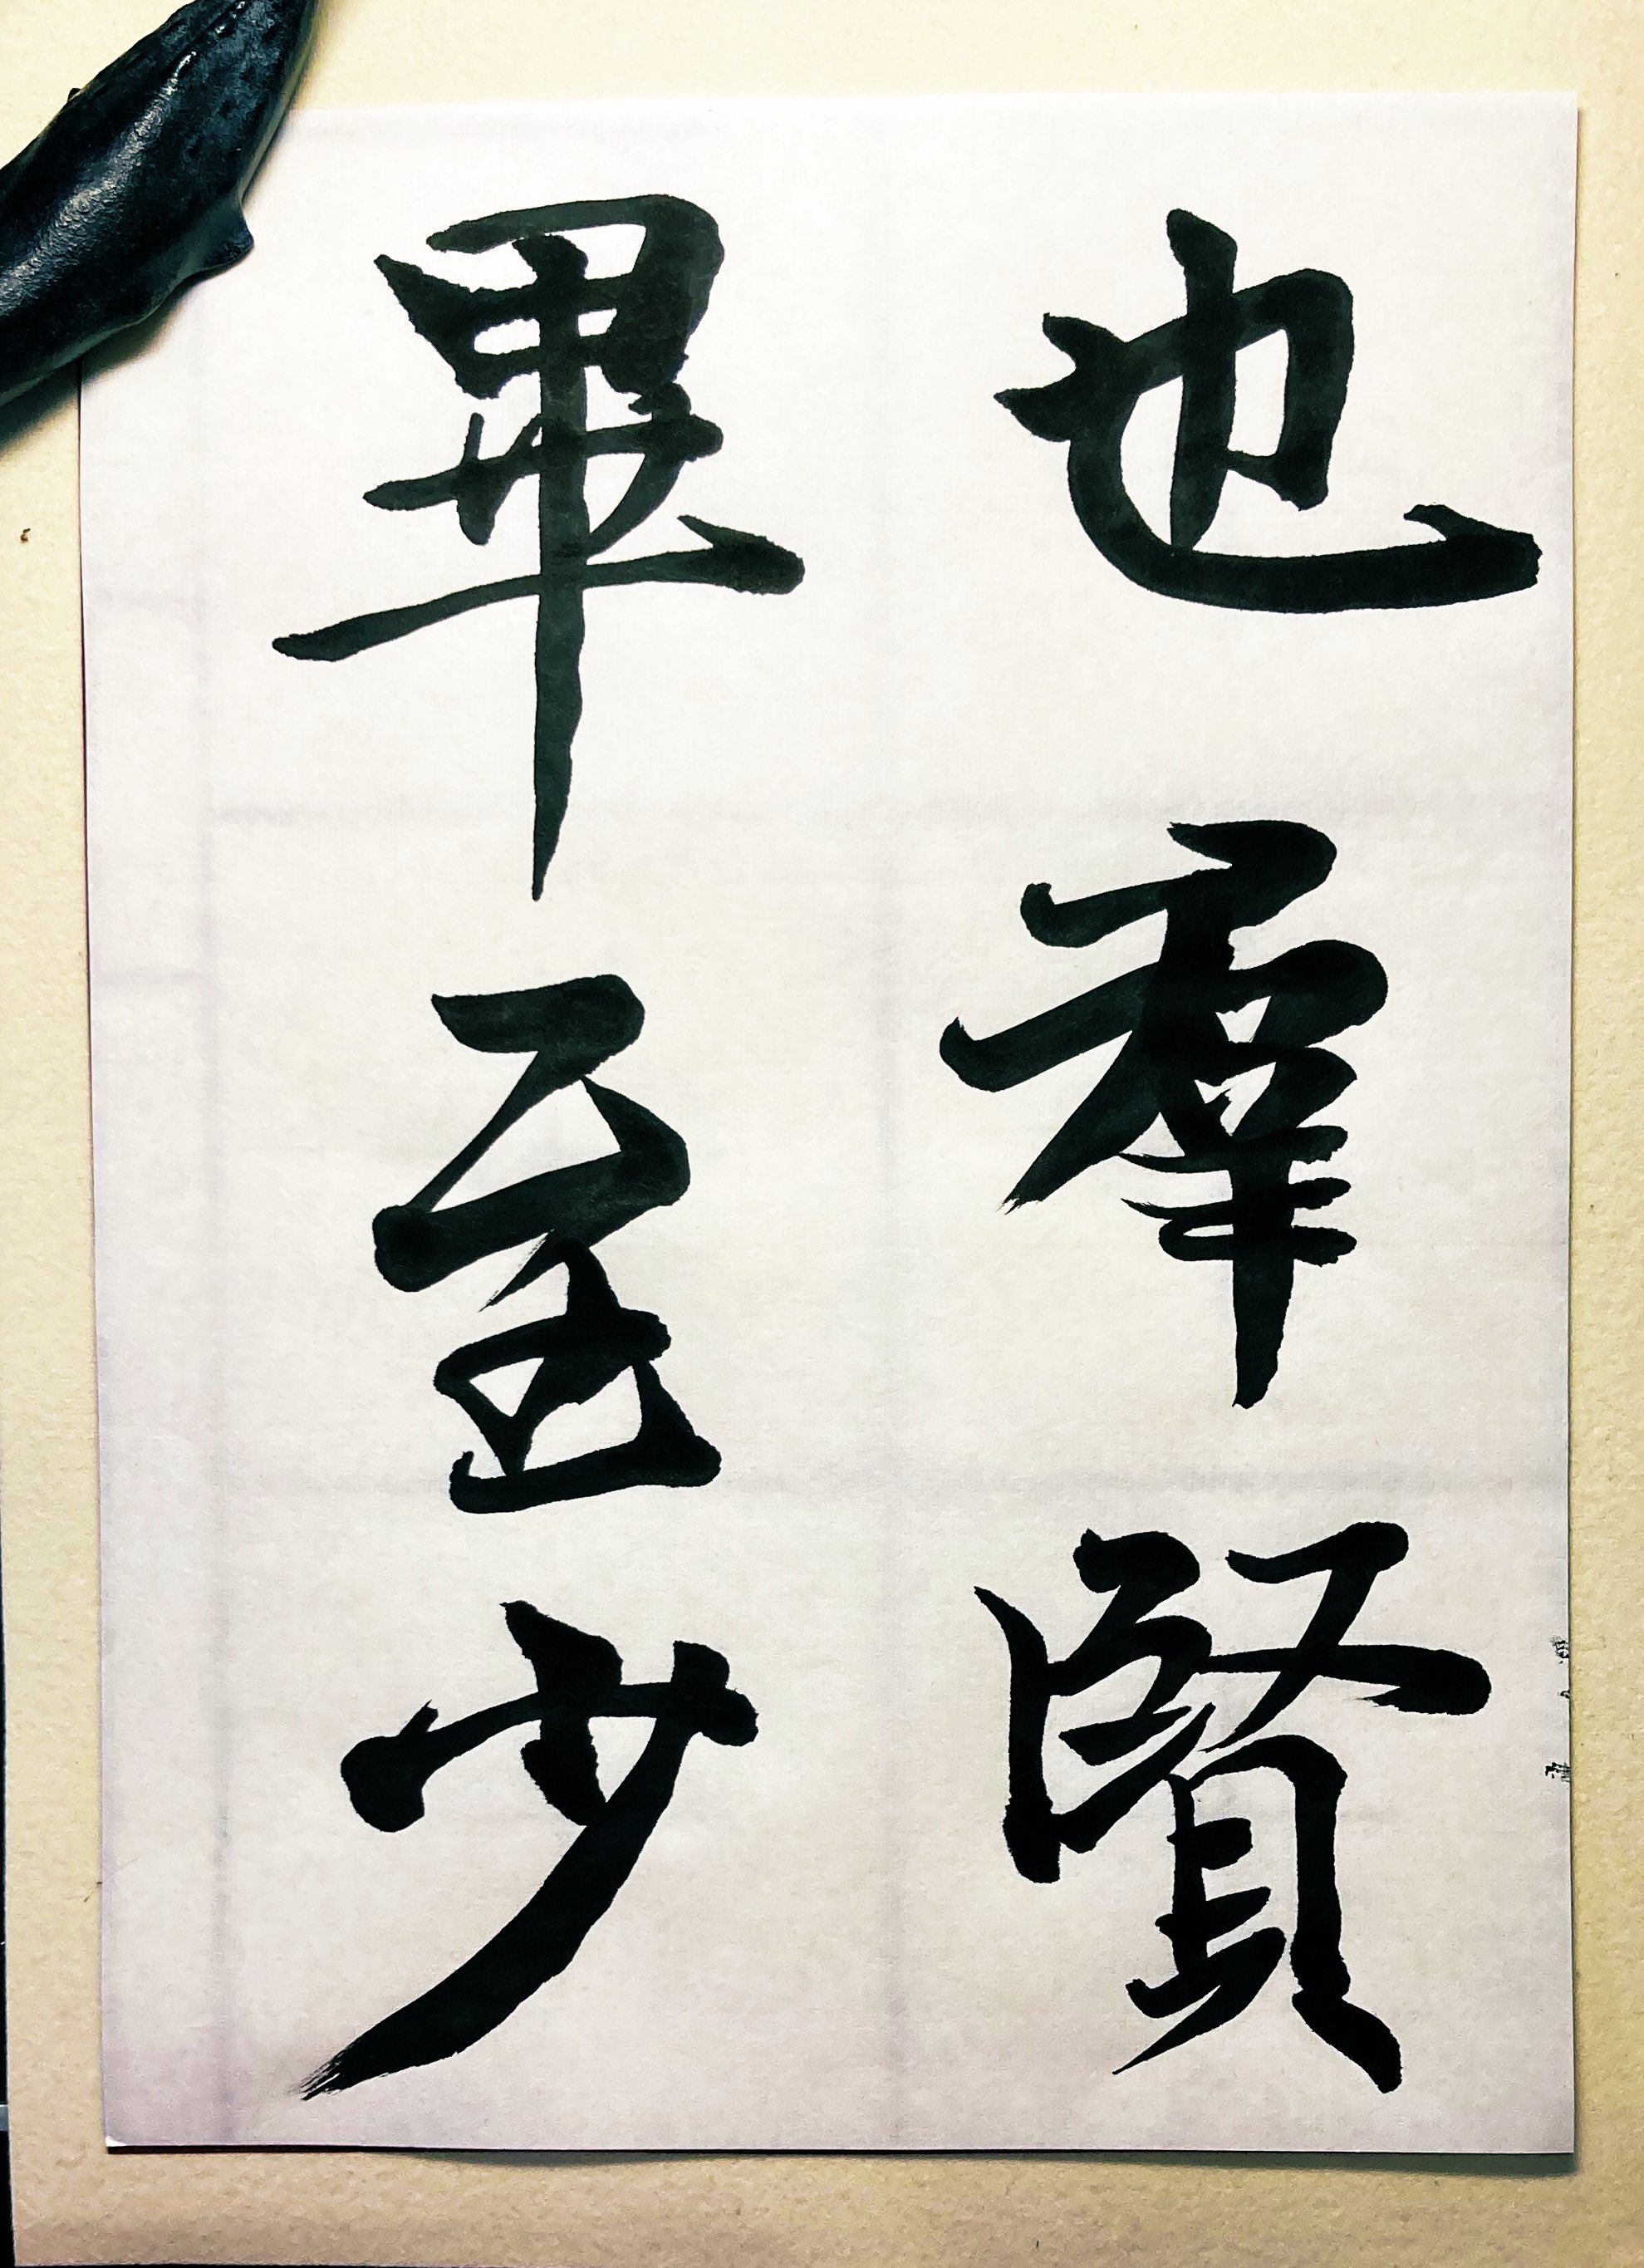 也羣賢
畢至少